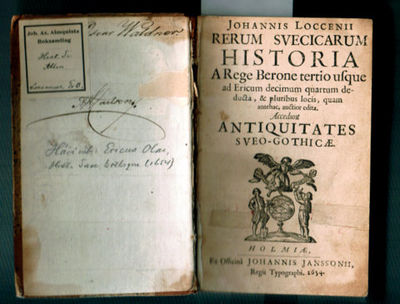 Joh. Ax. Almquists
Boksamling
Hist. Sv.
Allm.
Waldner
Ericus Olai,
JOHANNIS LOCCENII
RERUM SVECICARUM
HISTORIA
A Rege Berone tertio usque
ad Ericum decimum quartum de-
ducta, & pluribus locis, quam
antehac, auctior edita.
Accedunt
ANTIQUITATES
SVEO-GOTHICÆ.
HOLMIÆ,
Ex Officinâ JOHANNIS JANSSONII,
Regii Typographi. 1654